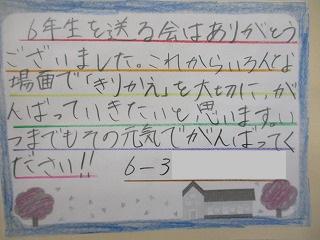 6年生を送る会はありがとう
ございました。これからいろんな
場面で「きりかえ」を大切に、が
んばっていきたいと思います。い
つまでもその元気でがんばってく
ださい!!　6-3